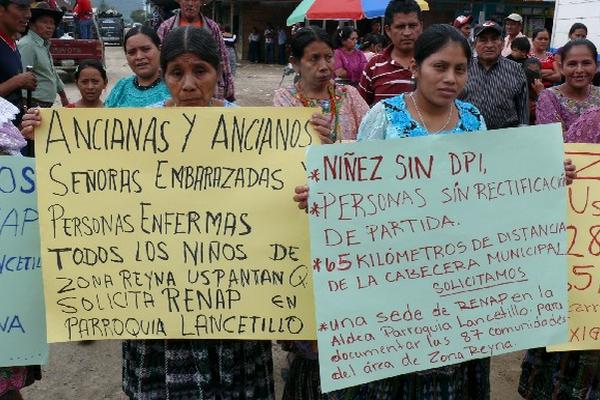 OS
NAP
ANCIANAS Y ANCIANOS
SEÑORAS EMBARAZADAS
PERSONAS ENFERMAS
TODOS LOS NIÑOS DE
ZONA REYNA USPANTAN Q.
SOLICITA RENAP EN
PARROQUIA LANCETILLO
* NIÑEZ SIN DPI,
* PERSONAS SIN RECTIFICACIÓN
DE PARTIDA.
* 65 KILÓMETROS DE DISTANCIA
DE LA CABECERA MUNICIPAL
SOLICITAMOS
* una sede de RENAP en la
Aldea Parroquia Lancetillo, para
documentar las 87 comunidades
del área de Zona Reyna.
TOYOTA